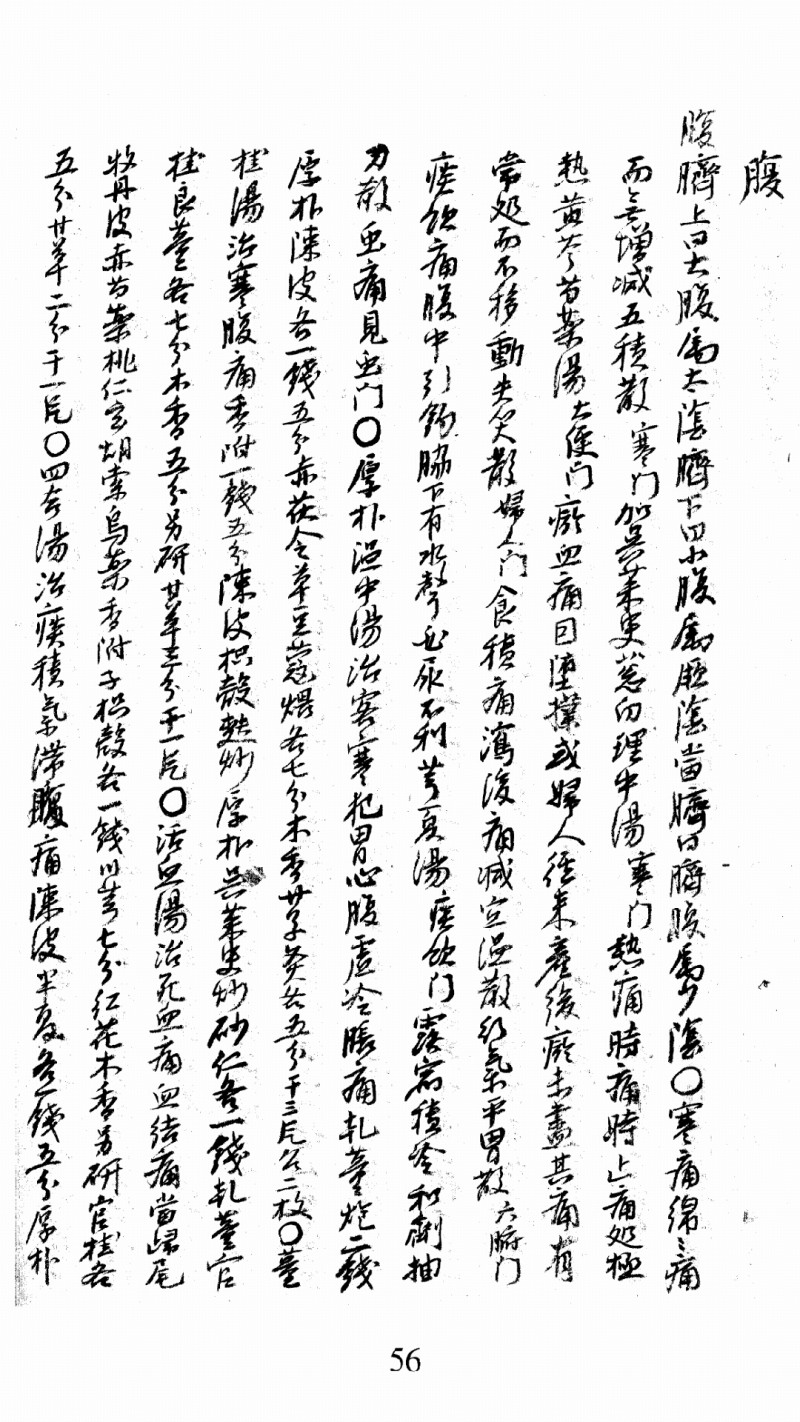 腹
腹臍上曰大腹屬太陰臍下曰小腹屬厥陰當臍曰臍腹屬少陰〇寒痛綿々痛
而無增減五積散寒门加吳茱萸葱白理中湯寒门熱痛時痛時止痛処極
熱黄芩芍藥湯大便门瘀血痛因墜撲或婦人經来產後瘀未盡其痛有
常処而不移動失笑散婦人门食積痛瀉後痛减宜温散行氣平胃散六腑门
痰飲痛腹中引鈎脇下有水聲 尿不利芎夏湯痰飲门露宿積冷和劑抽
刀散虫痛見虫门〇厚朴温中湯治客寒犯胃心腹虚冷脹痛乹薑炮二錢
厚朴陳皮各一錢五分赤茯令草豆蔻煨各七分木香甘草炙各五分干三片 二枚〇薑
桂湯治寒腹痛香附一錢五分陳皮枳殼麩炒厚朴吳茱萸炒砂仁各一錢乹薑官
桂良薑各七分木香五分另研甘草三分干一片〇活血湯治死血痛血结痛當歸尾
牧丹皮赤芍藥桃仁玄胡索烏藥香附子枳殼各一錢川芎七分红花木香另研官桂各
五分甘草二分干一片〇四合湯治痰積氣滞腹痛陳皮半夏各一錢五分厚朴
56